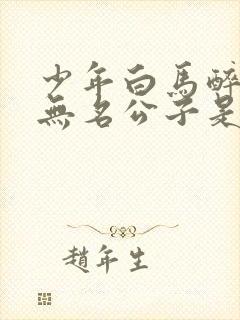 少年白馬醉
無名公子是
趙年生